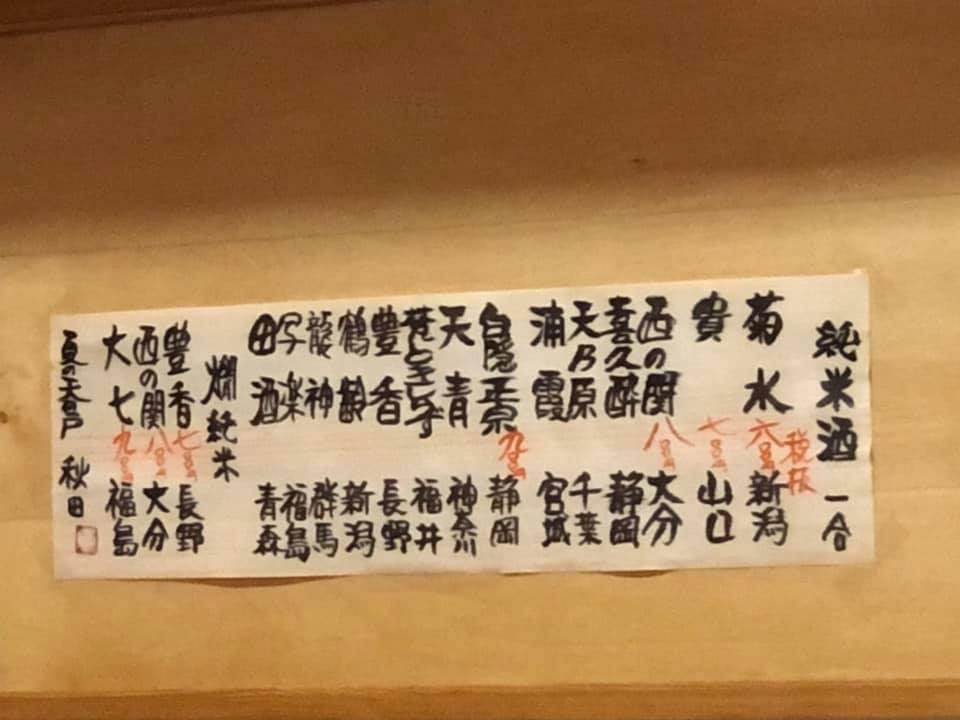 純米酒 一合
税抜
菊水 六百円 新潟
貴 七百円 山口
西の関 八百円 大分
喜久醉 静岡
天乃原 千葉
浦霞 宮城
白隠正宗 九百円 静岡
天青 神奈川
福井
豊香 長野
鶴齢 新潟
龍神 群馬
写楽 福島
田酒 青森
燗純米
豊香 七百円 長野
西の関 八百円 大分
大七 九百円 福島
夏の天の戸 秋田